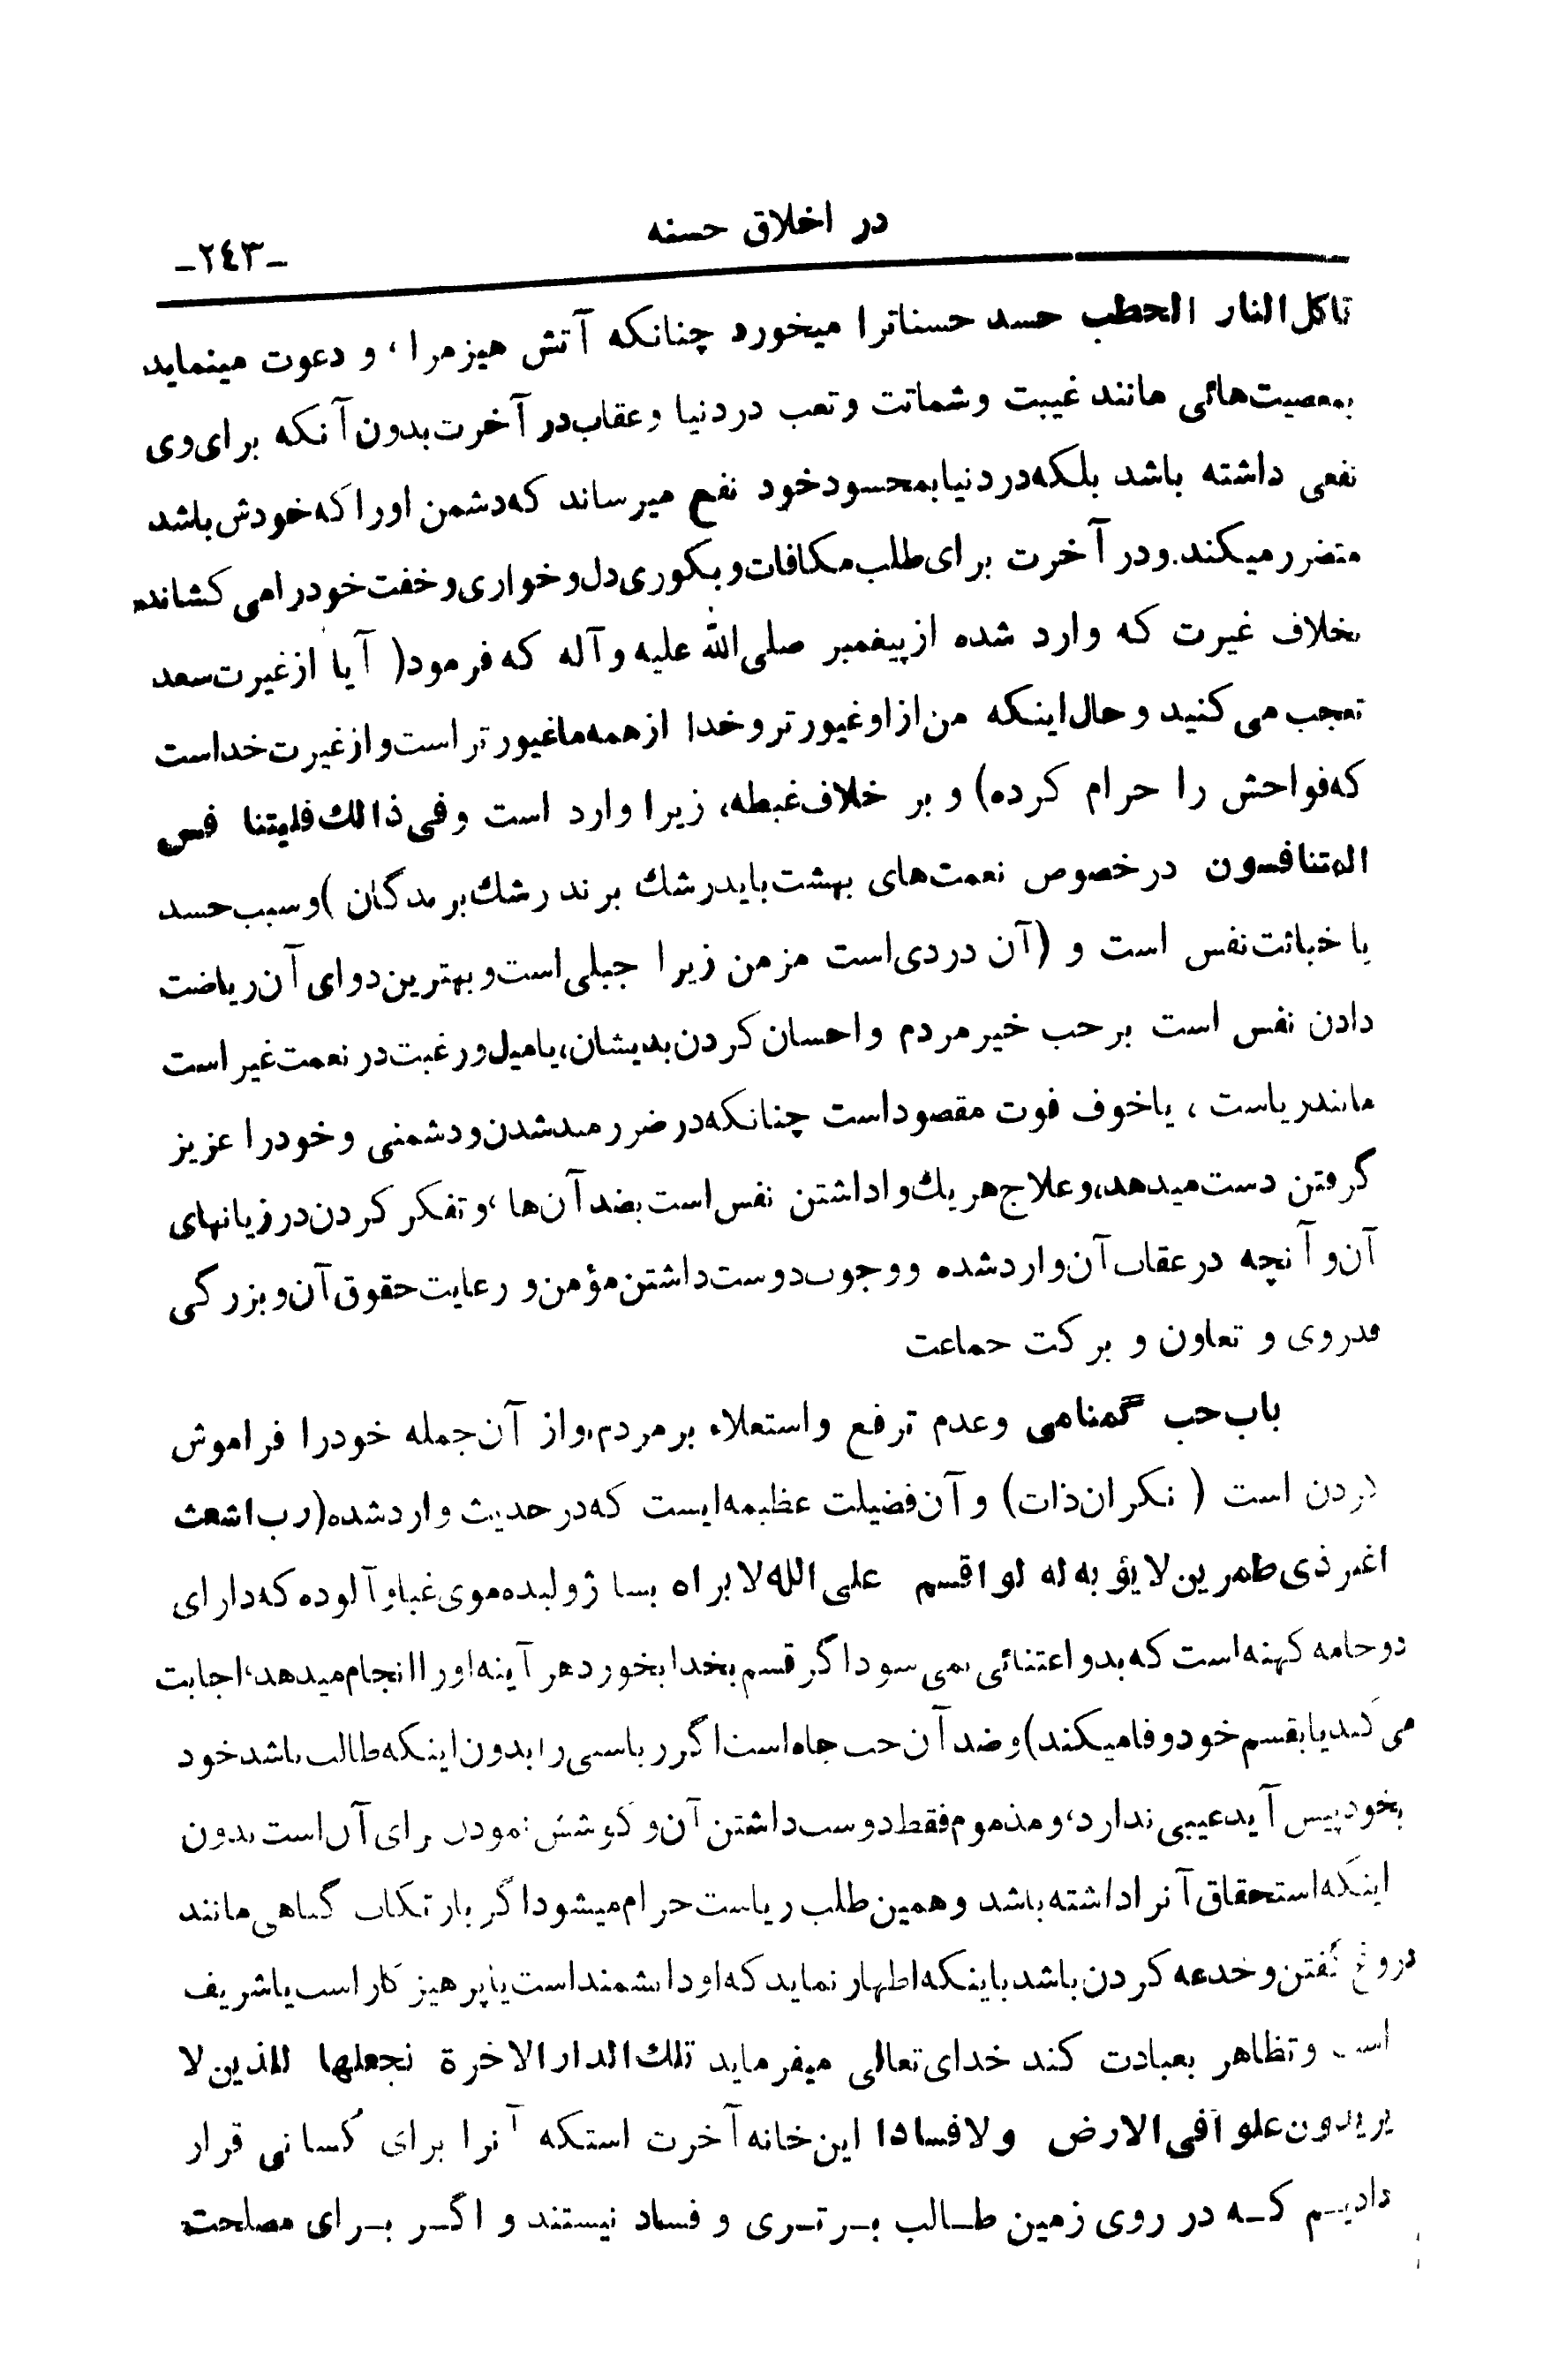 در اخلاق حسنه
-۲٤۳-
تاكل النار الحطب حسد حسناترا میخورد چنانکه آتش هیزمرا ، و دعوت مینماید
بمعصیت‌هائی مانند غیبت وشماتت وتعب دردنیا وعقاب‌در آخرت‌بدون آنکه برای‌وی
نفعی داشته باشد بلکه‌در دنیابمحسودخود نفع میرساند که‌دشمن اورا که‌خودش‌باشد
متضررمیکند.ودر آخرت برای‌طلب‌مکافات‌وبکوری‌دل‌وخواری‌وخفت‌خودرامی کشاند
بخلاف غیرت که وارد شده ازپیغمبر صلی‌الله علیه وآله که‌فرمود( آیا ازغیرت‌سعد
تعجب می کنید وحال‌اینکه من‌ازاوغیورتروخدا ازهمه‌ماغیورتراست‌وازغیرت‌خداست
که‌فواحش را حرام کرده) و بر خلاف‌غبطه، زیرا وارد است وفی‌ذالك‌فلیتنا فس
المتنافسون درخصوص نعمت‌های بهشت‌بایدرشك برند رشك‌برندگان )وسبب‌حسد
یا خباثت‌نفس است و (آن دردی‌است مزمن زیرا جبلی‌است‌وبهترین‌دوای آن‌ریاضت
دادن نفس است برحب خیرمردم واحسان‌کردن‌بدیشان،یامیل‌ورغبت‌در نعمت‌غیراست
مانندریاست ، یاخوف فوت مقصوداست چنانکه‌درضررمندشدن‌ودشمنی وخودرا عزیز
گرفتن دست‌میدهد،وعلاج‌هریك‌واداشتن نفس‌است‌بضدآن‌ها ،وتفکرکردن‌درزیانهای
آن‌وآنچه درعقاب‌آن‌واردشده ووجوب‌دوست‌داشتن‌مؤمن‌و رعایت‌حقوق‌آن‌وبزرگی
قدروی و تعاون و برکت جماعت
باب‌حب گمنامی وعدم ترفع واستعلاء برمردم،واز آن‌جمله خودرا فراموش
کردن است ( نکران‌ذات) وآن‌فضیلت عظیمه‌ایست که‌درحدیث واردشده(رب‌اشعث
اغبرذی‌طمرین‌لایؤ به‌له لواقسم علی‌الله‌لابراه بسا ژولیده‌موی‌غبارآلوده‌که‌دارای
دوجامه کهنه‌است‌که‌بدواعتنائی نمی شوداگرقسم‌بخدابخوردهرآینه‌اوراانجام‌میدهد،اجابت
می کندیابقسم‌خودوفامیکند)وضدآن‌حب‌جاه‌است‌اگرریاستی‌رابدون‌اینکه‌طالب‌باشدخود
بخودپیش آیدعیبی‌ندارد،ومذموم‌فقط‌دوست‌داشتن‌آن‌وکوشش‌نمودن برای‌آن‌است‌بدون
اینکه‌استحقاق‌آنراداشته‌باشد وهمین‌طلب‌ریاست‌حرام‌میشوداگربارتکاب گناهی‌مانند
دروغ گفتن‌وخدعه‌کردن‌باشدباینکه‌اظهارنماید که‌اودانشمنداست‌یاپرهیزکاراست‌یاشریف
است وتظاهر بعبادت کند خدای‌تعالی میفرماید تلك‌الدارالاخرة نجعلها للذین‌لا
یریدون‌علوافی‌الارض ولافسادا این‌خانه‌آخرت استکه آنرا برای کسانی قرار
دادیـم کـه در روی زمین طـالب بـرتـری و فساد نیستند و اگـر بـرای مصلحت